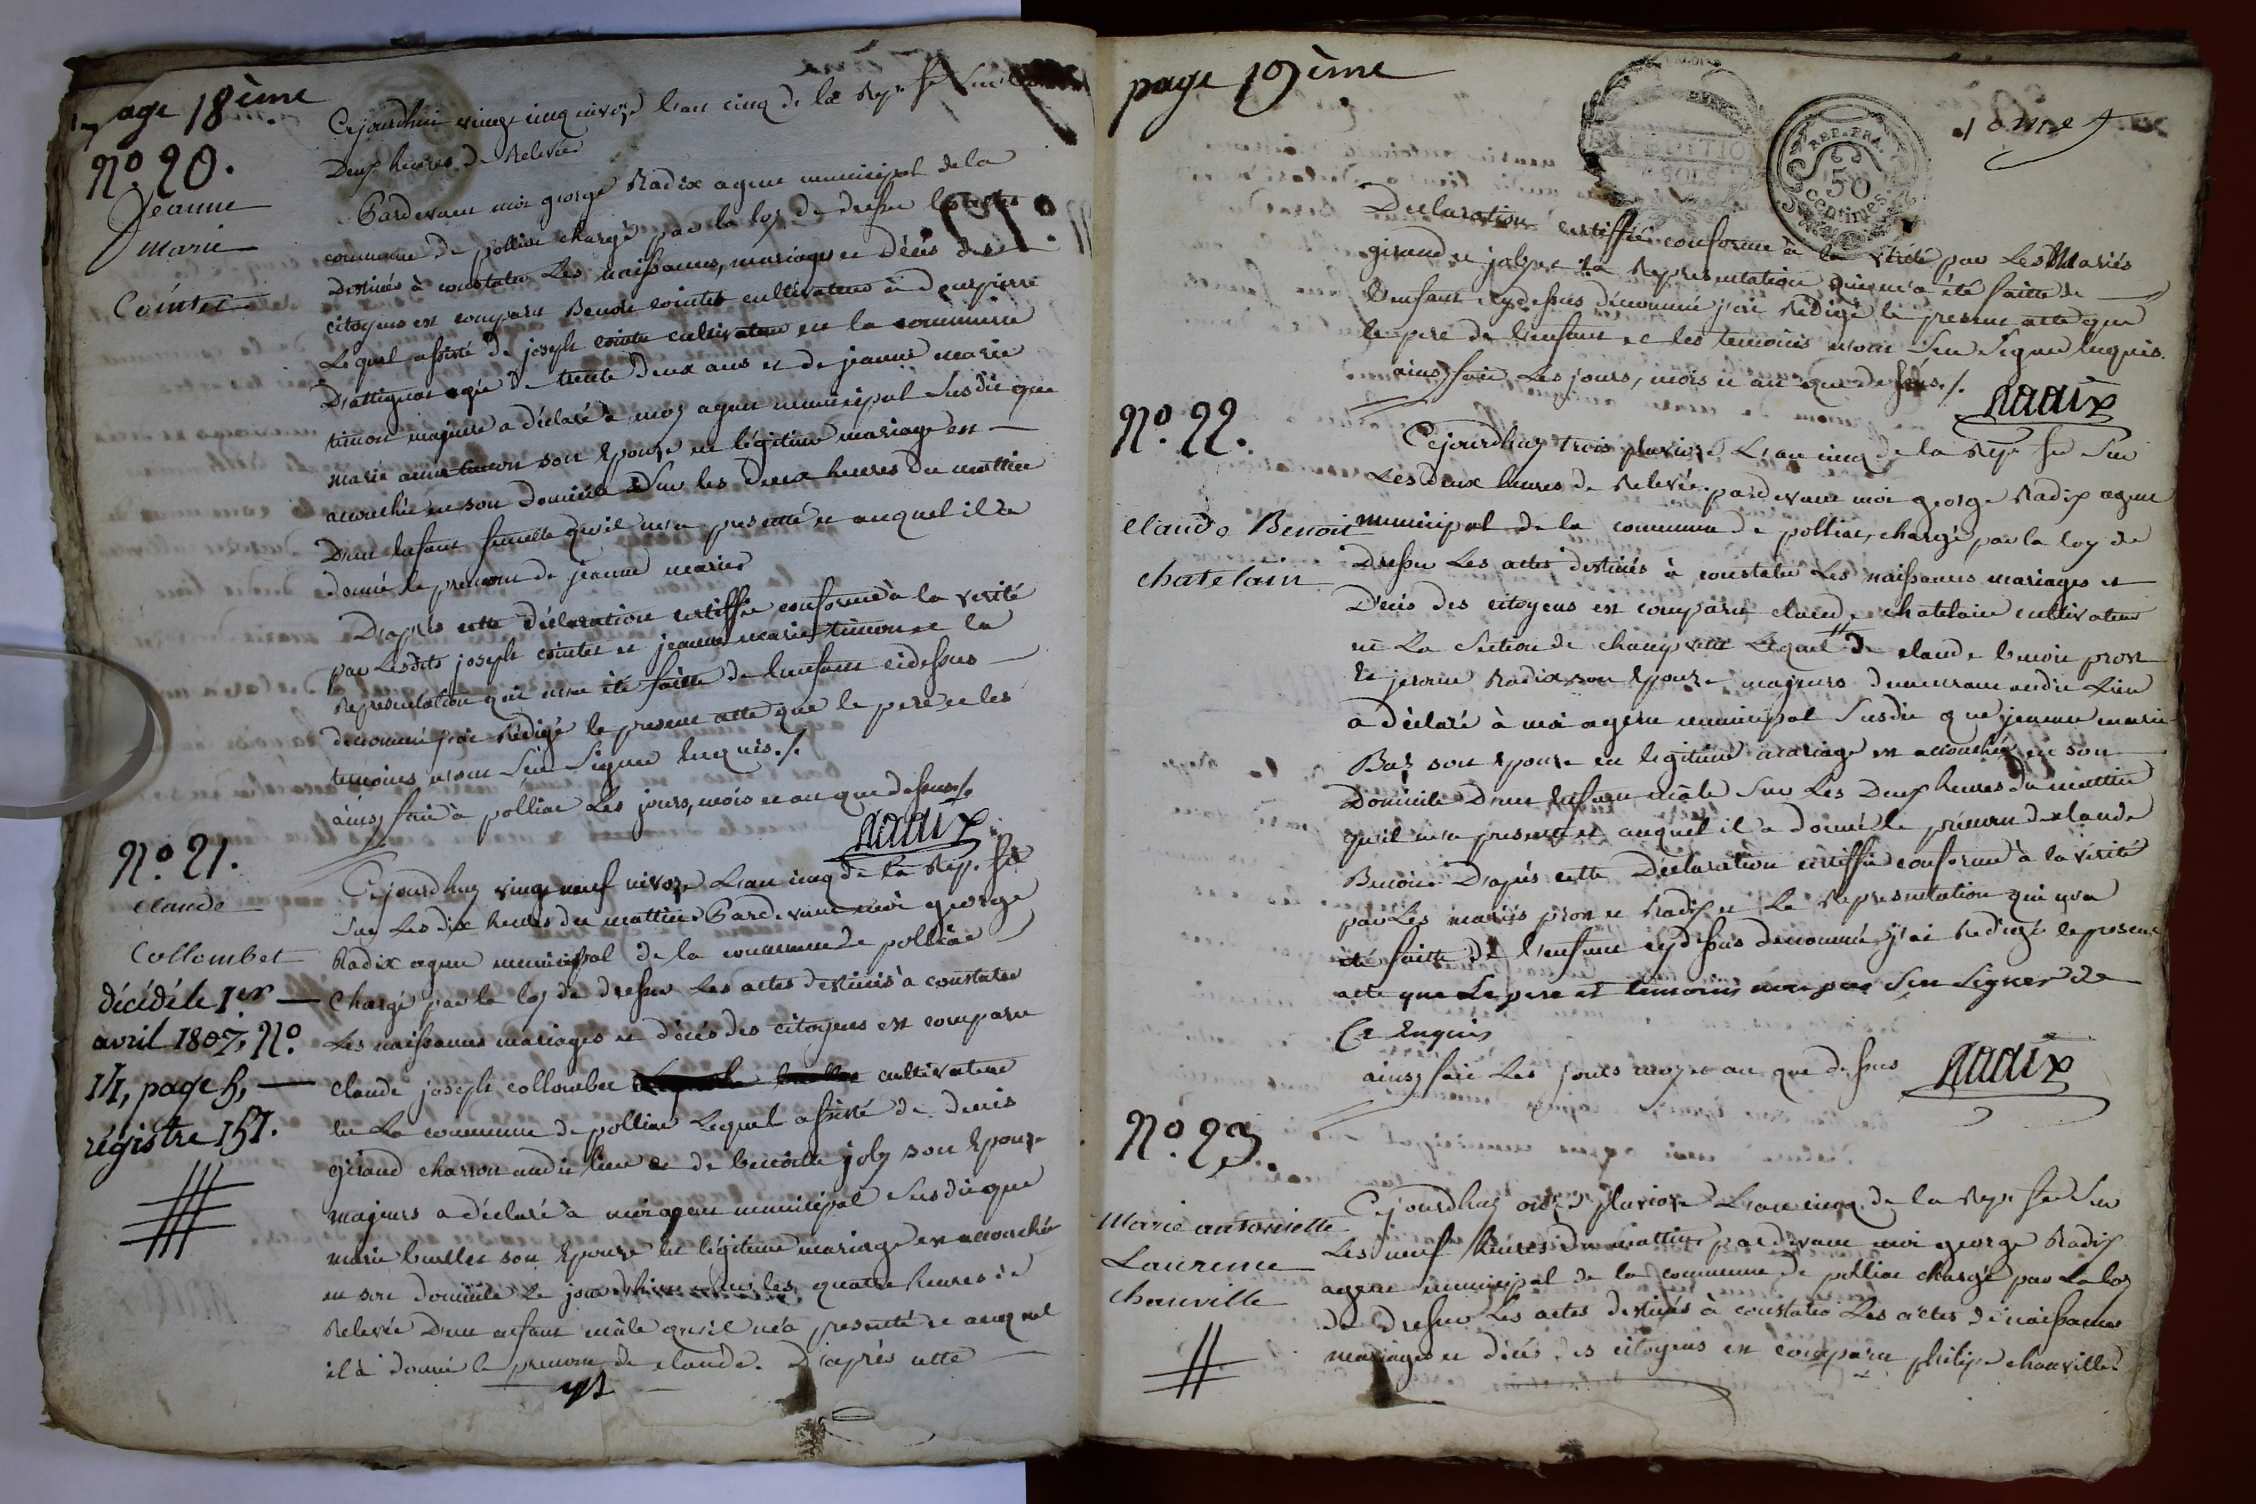 page 18ème
N.º 20.
Jeanne
marie
Cointet
Cejourdhui vingt cinq nivoze l'an cinq de la Rep. fse Sur les
Deux heures de Relevée
Pardevant moi george Radix agent municipal de la
commune de polliat chargé par la loy de dresser les actes
destinés à constater Les naissances, mariages et décès des
citoyens est comparu Benoit cointet cultivateur à dompierre
Lequel assisté de joseph cointet cultivateur en la commune
D'attignat agée de trente deux ans et de jeanne marie
timon majeure a déclaré à moy agent municipal Susdit que
marie anne timon son Epouze en légitime mariage est
accouchée en son domicile Sur les deux heures du mattin
D'un Enfant femelle qu'il m'a presenté et auquel il a
donné le prenom de jeanne marie
D'après cette déclaration certiffiée conforme à la verité
par Lesdits joseph cointet et jeanne marie timon et la
Representation qui m'a été faitte de l'enfant cidessus
denommé j'ai Rédigé le present acte que le pere et les
temoins n'ont Seu Signer Enquis ./.
ainsy fait à polliat Les jours, mois et an que dessus ./.
Radix
N.º 21.
claude
Collombet
décédé le 1.er
avril 1807, N.º
14, page 5,
régistre 151.
Cejourdhuy vingt neuf nivoze L'an cinq de la Rep. fse
Sur Les dix heures du mattin Pardevant moi george
Radix agent municipal de la commune de polliat
Chargé par la loy de dresser Les actes destinés à constater
Les naissances mariages et décès des citoyens est comparu
claude joseph collombet cultivateur
en La commune de polliat Lequel assisté de denis
girand charron audit lieu et de benoite joly son Epouze
majeurs a déclaré à moi agent municipal Susdit que
marie buellet son Epouze en légitime mariage est accouchée
en son domicile Le jour d'hier Sur les quatre heures de
Relevée D'un enfant mâle qu'il m'a presenté et auquel
il à donné le prenom de claude. D'après cette
page 19ème
REP. FRA.
50
centimes
Declaration certiffiée conforme à la vérité par Les Mariés
girand et joly et la Representation qui m'a été faitte de
L'enfant cydessus dénommé j'ai Rédigé le present acte que
le pere de l'enfant et les temoins n'ont Seu Signer Enquis.
ainsy fait Les jours, mois et an que dessus ./.
Radix
N.º 22.
claude Benoit
chatelain
Cejourdhuy trois pluvioze L'an cinq de la Rep. fse Sur
Les Deux heures de Relevée pardevant moi george Radix agent
municipal de la commune de polliat, chargé par la loy de
Dresser Les actes destinés à constater Les naissances mariages et
Décès des citoyens est comparu claude chatelain cultivateur
en La Section de champ Lequel de claude benoit pron
et jeromie Radix son Epouze majeurs demeurant audit Lieu
a déclaré à moi agent municipal Susdit que jeanne marie
Bas son epouze en legitime mariage est accouchée en son
Domicile D'un Enfant mâle Sur Les Deux heures du mattin
qu'il m'a presenté et auquel il a donné le prénom de claude
Benoit. D'après cette Déclaration certiffiée conforme à la vérité
par Les mariés pron et Radix et La Representation qui m'a
été faitte de l'enfant cydessus denommé, j'ai Redigé le present
acte que Le pere et temoins n'ont pas Seu Signer de
Ce Enquis
ainsy fait Les jours moys et an que dessus
Radix
N.º 23.
Marie antoniette
Laurence
chanville
Cejourdhuy onze pluvioze L'an cinq de la Rep. fse Sur
Les neuf heures du mattin pardevant moi george Radix
agent municipal de la commune de polliat chargé par La loy
de dresser Les actes destinés à constater Les actes de naissances
mariages et décès des citoyens est comparu philipe chanville